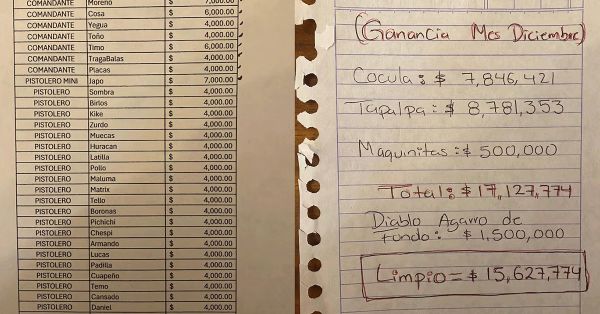 COMANDANTE Moreno $ 7,000.00
COMANDANTE Cosa $ 6,000.00
COMANDANTE Yegua $ 4,000.00
COMANDANTE Toño $ 4,000.00
COMANDANTE Timo $ 6,000.00
COMANDANTE TragaBalas $ 4,000.00
COMANDANTE Placas $ 4,000.00
PISTOLERO MINI Japo $ 7,000.00
PISTOLERO Sombra $ 4,000.00
PISTOLERO Birlos $ 4,000.00
PISTOLERO Kike $ 4,000.00
PISTOLERO Zurdo $ 4,000.00
PISTOLERO Muecas $ 4,000.00
PISTOLERO Huracan $ 4,000.00
PISTOLERO Latilla $ 4,000.00
PISTOLERO Pollo $ 4,000.00
PISTOLERO Maluma $ 4,000.00
PISTOLERO Matrix $ 4,000.00
PISTOLERO Tello $ 4,000.00
PISTOLERO Boronas $ 4,000.00
PISTOLERO Pichichi $ 4,000.00
PISTOLERO Chespi $ 4,000.00
PISTOLERO Armando $ 4,000.00
PISTOLERO Lucas $ 4,000.00
PISTOLERO Padilla $ 4,000.00
PISTOLERO Cuapeño $ 4,000.00
PISTOLERO Temo $ 4,000.00
PISTOLERO Cansado $ 4,000.00
PISTOLERO Daniel $ 4,000.00
(Ganancia Mes Diciembre)
Cocula: $ 7,846,421
Tapalpa: $ 8,781,353
Maquinitas: $ 500,000
Total: $ 17,127,774
Diablo Agarro de
Fondo: $ 1,500,000
Limpio = $ 15,627,774